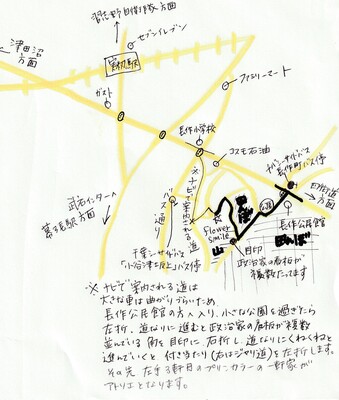 習志野自衛隊方面
セブンイレブン
津田沼
方面
実籾駅
ガスト
ファミリーマート
長作小学校
コスモ石油
ナビで案内される道
バス通り
武石インターへ
幕張駅方面
千葉シーサイドバス
「小谷津土尻上」バス停
flower
smile
山
田んぼ
千葉シーサイドバス
長作町バス停
長作公民館
田んぼ
目印
政治家の看板が
複数たってます
※ナビで案内される道は
大きな車は曲がりづらいため、
長作公民館の方へ入り、小さな公園を過ぎたら
左折、道なりに進むと政治家の看板が複数
並んでいる角を目印に右折し、道なりにくねくねと
進んでいくと付き当たり(右はジャリ道)を左折します。
その先左手3軒目のプリンカラーの一軒家が
アトリエとなります。